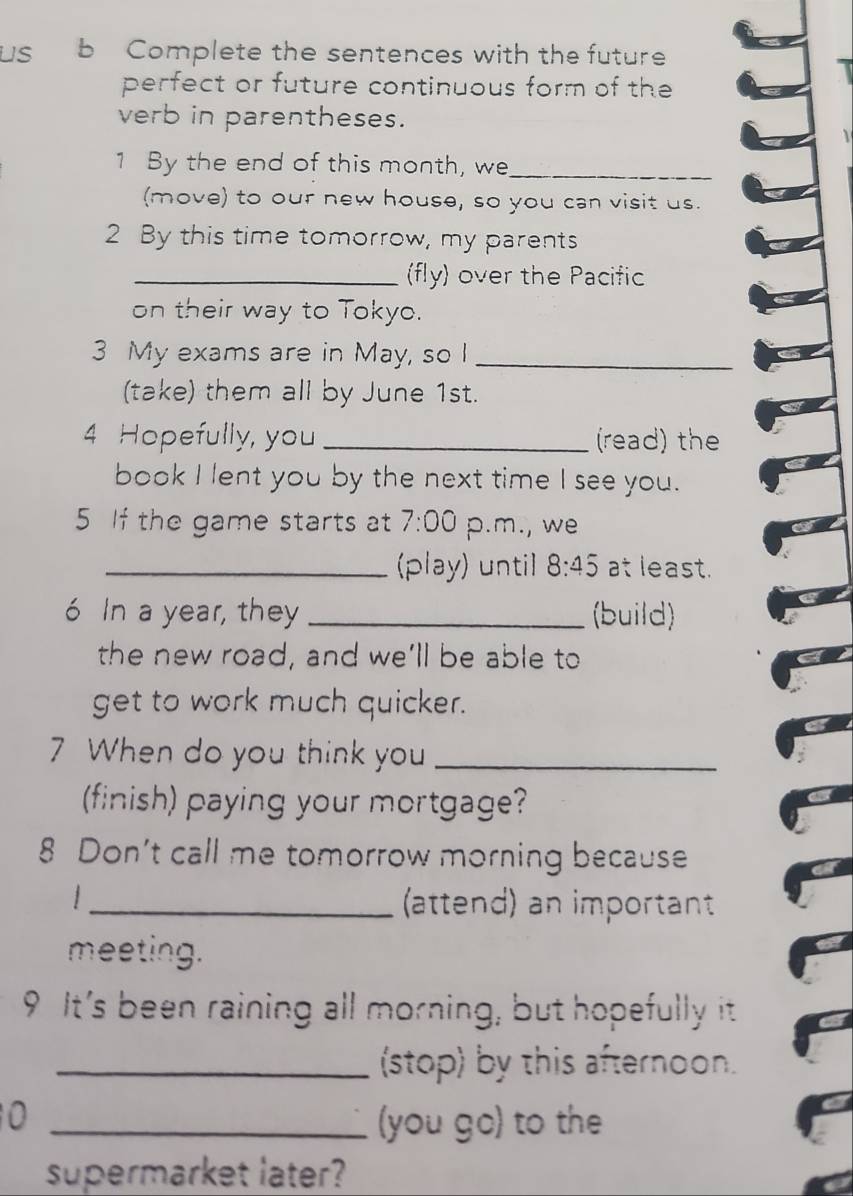 us b Complete the sentences with the future
perfect or future continuous form of the
verb in parentheses.
1 By the end of this month, we______
(move) to our new house, so you can visit us.
2 By this time tomorrow, my parents
______ (fly) over the Pacific
on their way to Tokyo.
3 My exams are in May, so I ______
(take) them all by June 1st.
4 Hopefully, you ______ (read) the
book I lent you by the next time I see you.
5 If the game starts at 7:00 p.m., we
______ (play) until 8:45 at least.
6 In a year, they ______ (build)
the new road, and we'll be able to
get to work much quicker.
7 When do you think you ______
(finish) paying your mortgage?
8 Don't call me tomorrow morning because
I ______ (attend) an important
meeting.
9 It's been raining all morning, but hopefully it
______ (stop) by this afternoon.
10 ______ (you go) to the
supermarket later?